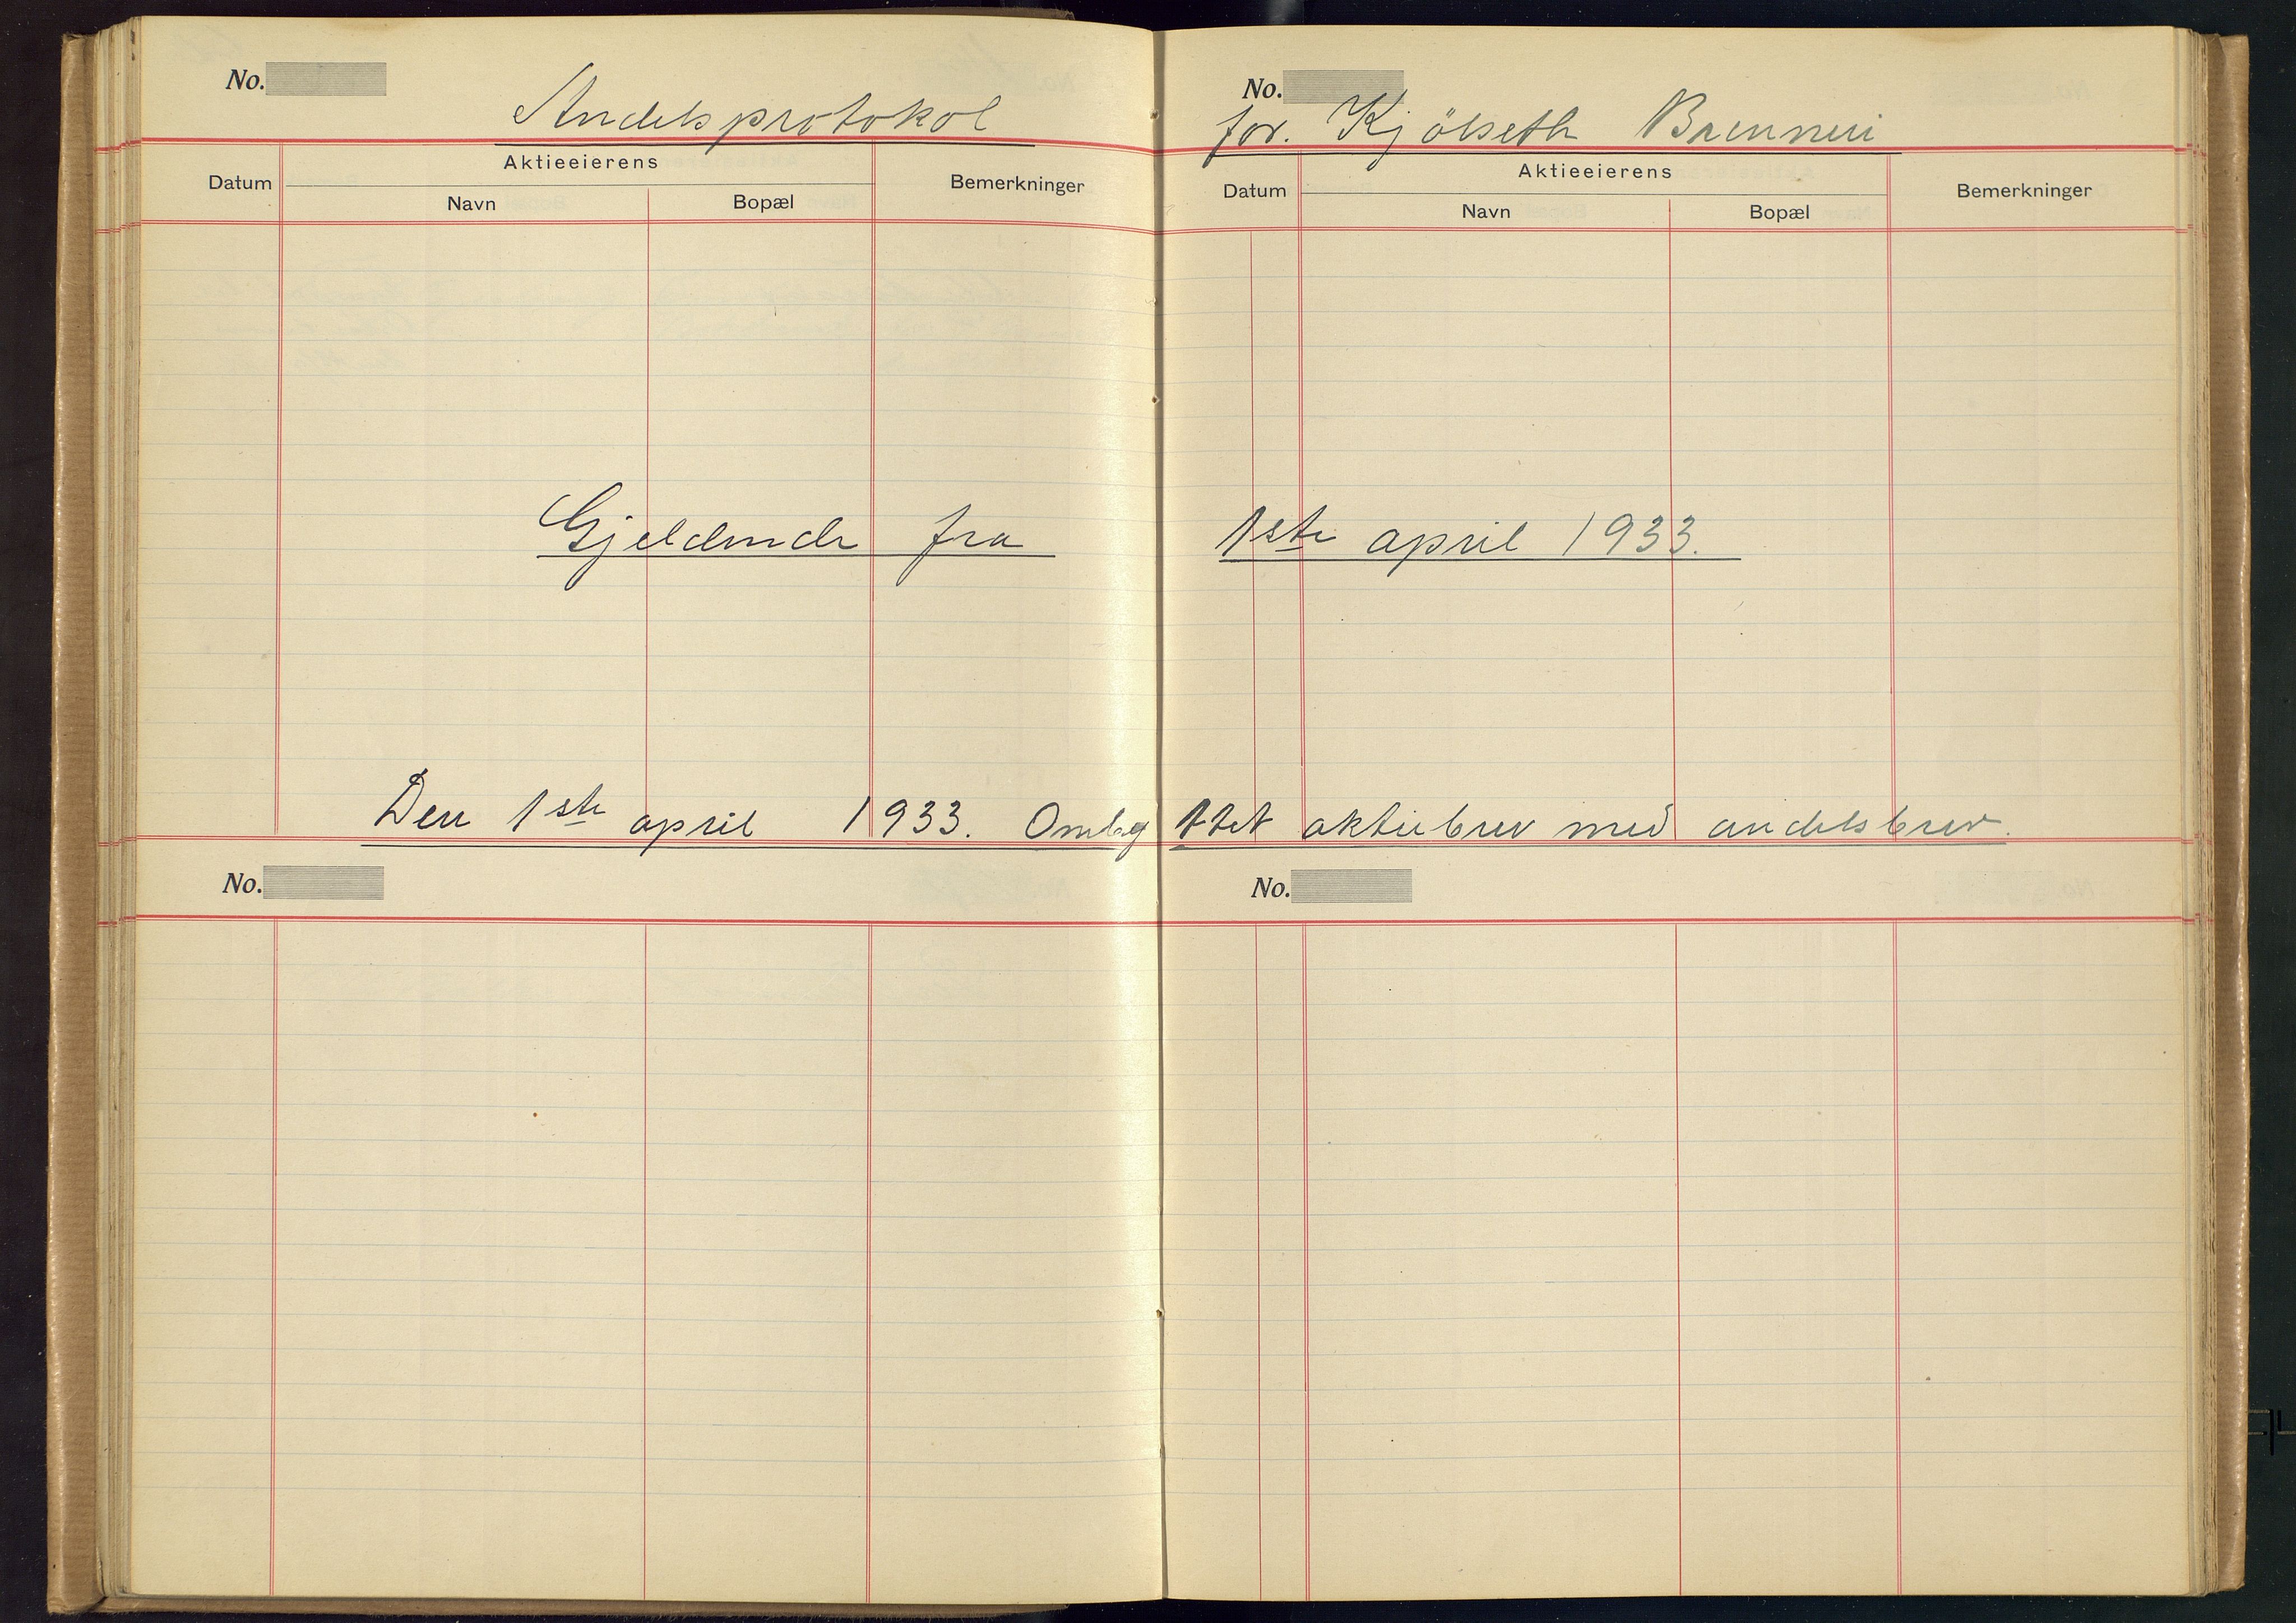 No. No.
Andelsprotokol for. Kjölseth Brenneri
Aktieeierens Aktieeierens
Datum Navn Bopæl Bemerkninger Datum Navn Bopæl Bemerkninger
Gjeldende fra 1ste april 1933.
Den 1ste april 1933. Ombyttet aktiebrev med andelsbrev.
No. No.